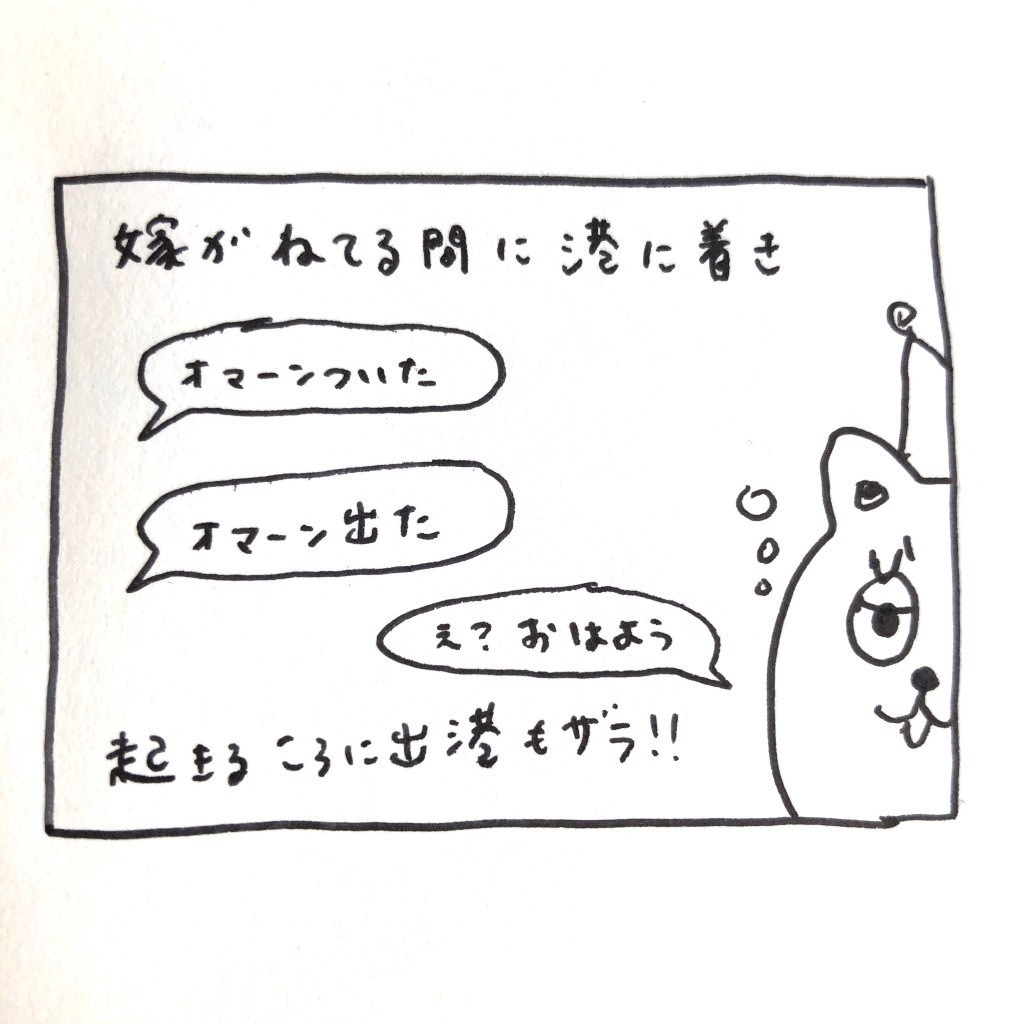 嫁がねてる間に港に着き
オマーンついた
オマーン出た
え?おはよう
起きるころに出港もザラ!!